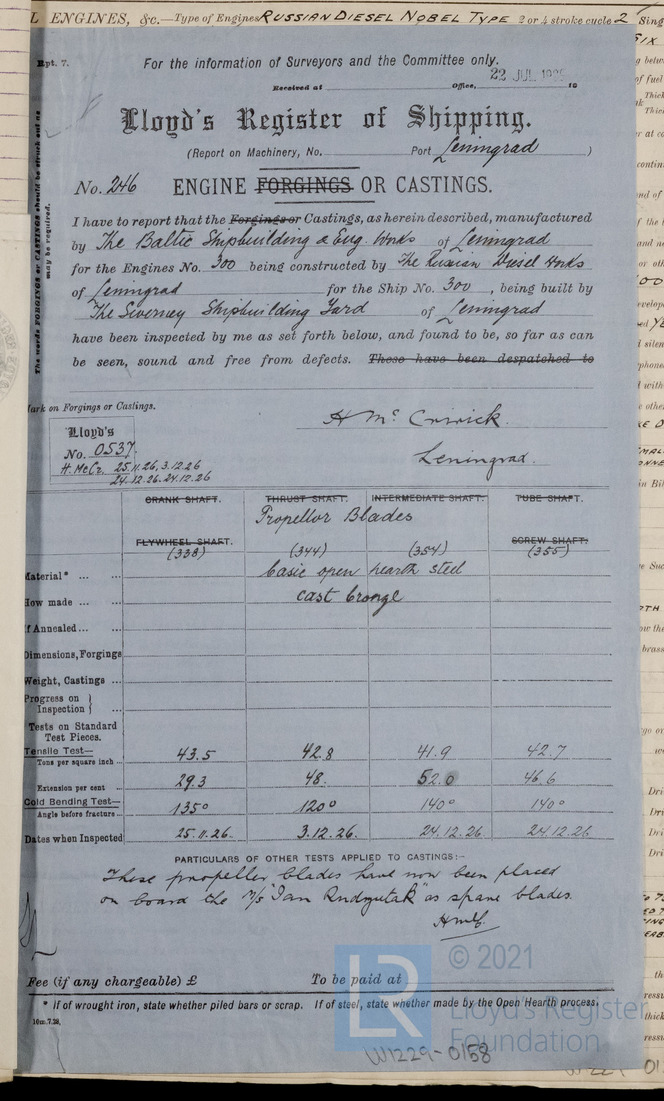 L ENGINES, &c.—Type of Engines RUSSIAN DIESEL NOBEL TYPE 2 or 4 stroke cycle 2 Sing
Rpt. 7.
For the information of Surveyors and the Committee only.
22 JUL
Received at Office, 19
Lloyd's Register of Shipping.
(Report on Machinery, No. Port Leningrad )
No. 246 ENGINE FORGINGS OR CASTINGS.
The words FORGINGS or CASTINGS should be struck out as
may be required.
I have to report that the Forgings or Castings, as herein described, manufactured
by The Baltic Shipbuilding & Eng. Works of Leningrad
for the Engines No. 300 being constructed by The Russian Diesel Works
of Leningrad for the Ship No. 300, being built by
The Severney Shipbuilding Yard of Leningrad
have been inspected by me as set forth below, and found to be, so far as can
be seen, sound and free from defects. These have been despatched to
Mark on Forgings or Castings.
Lloyd's
No. 0537.
H. McCr. 25.11.26, 3.12.26
24.12.26. 24.12.26
Leningrad.
CRANK SHAFT. THRUST SHAFT. INTERMEDIATE SHAFT. TUBE SHAFT.
Propellor Blades
FLYWHEEL SHAFT. SCREW SHAFT.
(338) (344) (354) (355)
Material* ... ... basic open hearth steel
How made ... ... cast bronze
If Annealed ... ...
Dimensions, Forgings
Weight, Castings ...
Progress on
Inspection } ...
Tests on Standard
Test Pieces.
Tensile Test—
Tons per square inch ... 43.5 42.8 41.9 42.7
Extension per cent ... 29.3 48. 52.0 46.6
Cold Bending Test—
Angle before fracture ... 135° 120° 140° 140°
Dates when Inspected 25.11.26. 3.12.26. 24.12.26 24.12.26
PARTICULARS OF OTHER TESTS APPLIED TO CASTINGS:—
These propeller blades have now been placed
on board the M/S "Jan Rudzutak" as spare blades.
HMcC
© 2021
Fee (if any chargeable) £ To be paid at
* If of wrought iron, state whether piled bars or scrap. If of steel, state whether made by the Open Hearth process.
LR
Lloyd's Register
Foundation
W1229-0158